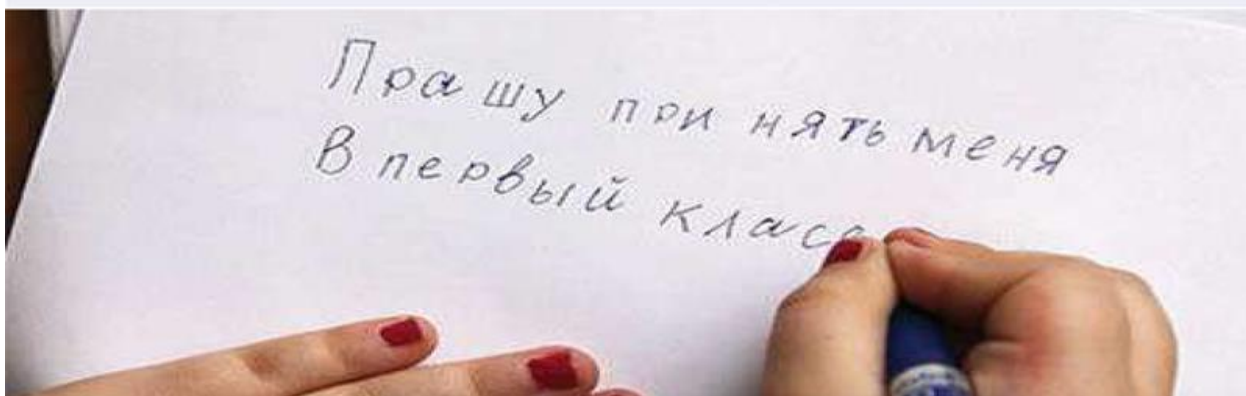 Прашу принять меня
В первый класс